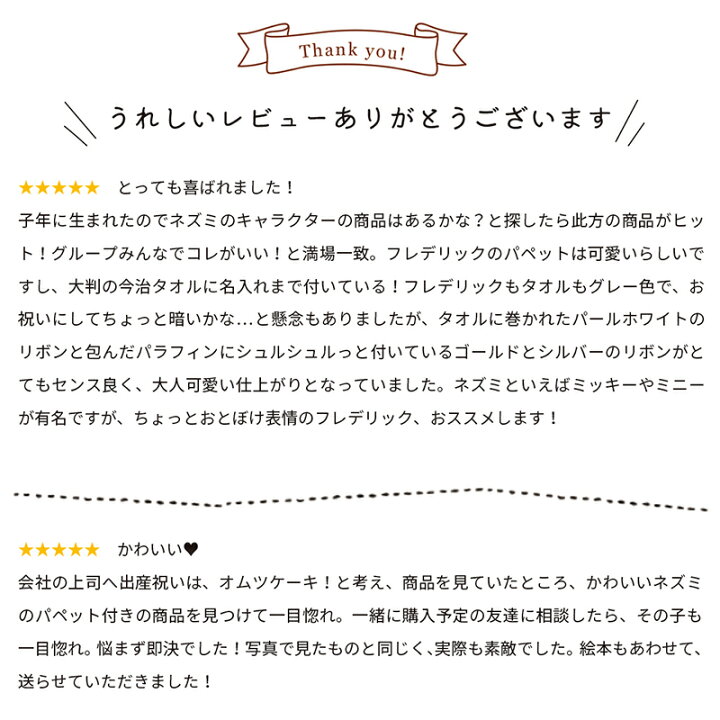 Thank you!
うれしいレビューありがとうございます
★★★★★ とっても喜ばれました！
子年に生まれたのでネズミのキャラクターの商品はあるかな？と探したら此方の商品がヒッ
ト！グループみんなでコレがいい！と満場一致。フレデリックのパペットは可愛いらしいで
すし、大判の今治タオルに名入れまで付いている！フレデリックもタオルもグレー色で、お
祝いにしてちょっと暗いかな…と懸念もありましたが、タオルに巻かれたパールホワイトの
リボンと包んだパラフィンにシュルシュルっと付いているゴールドとシルバーのリボンがと
てもセンス良く、大人可愛い仕上がりとなっていました。ネズミといえばミッキーやミニー
が有名ですが、ちょっとおとぼけ表情のフレデリック、おススメします！
★★★★★ かわいい♥
会社の上司へ出産祝いは、オムツケーキ！と考え、商品を見ていたところ、かわいいネズミ
のパペット付きの商品を見つけて一目惚れ。一緒に購入予定の友達に相談したら、その子も
一目惚れ。悩まず即決でした！写真で見たものと同じく、実際も素敵でした。絵本もあわせて、
送らせていただきました！